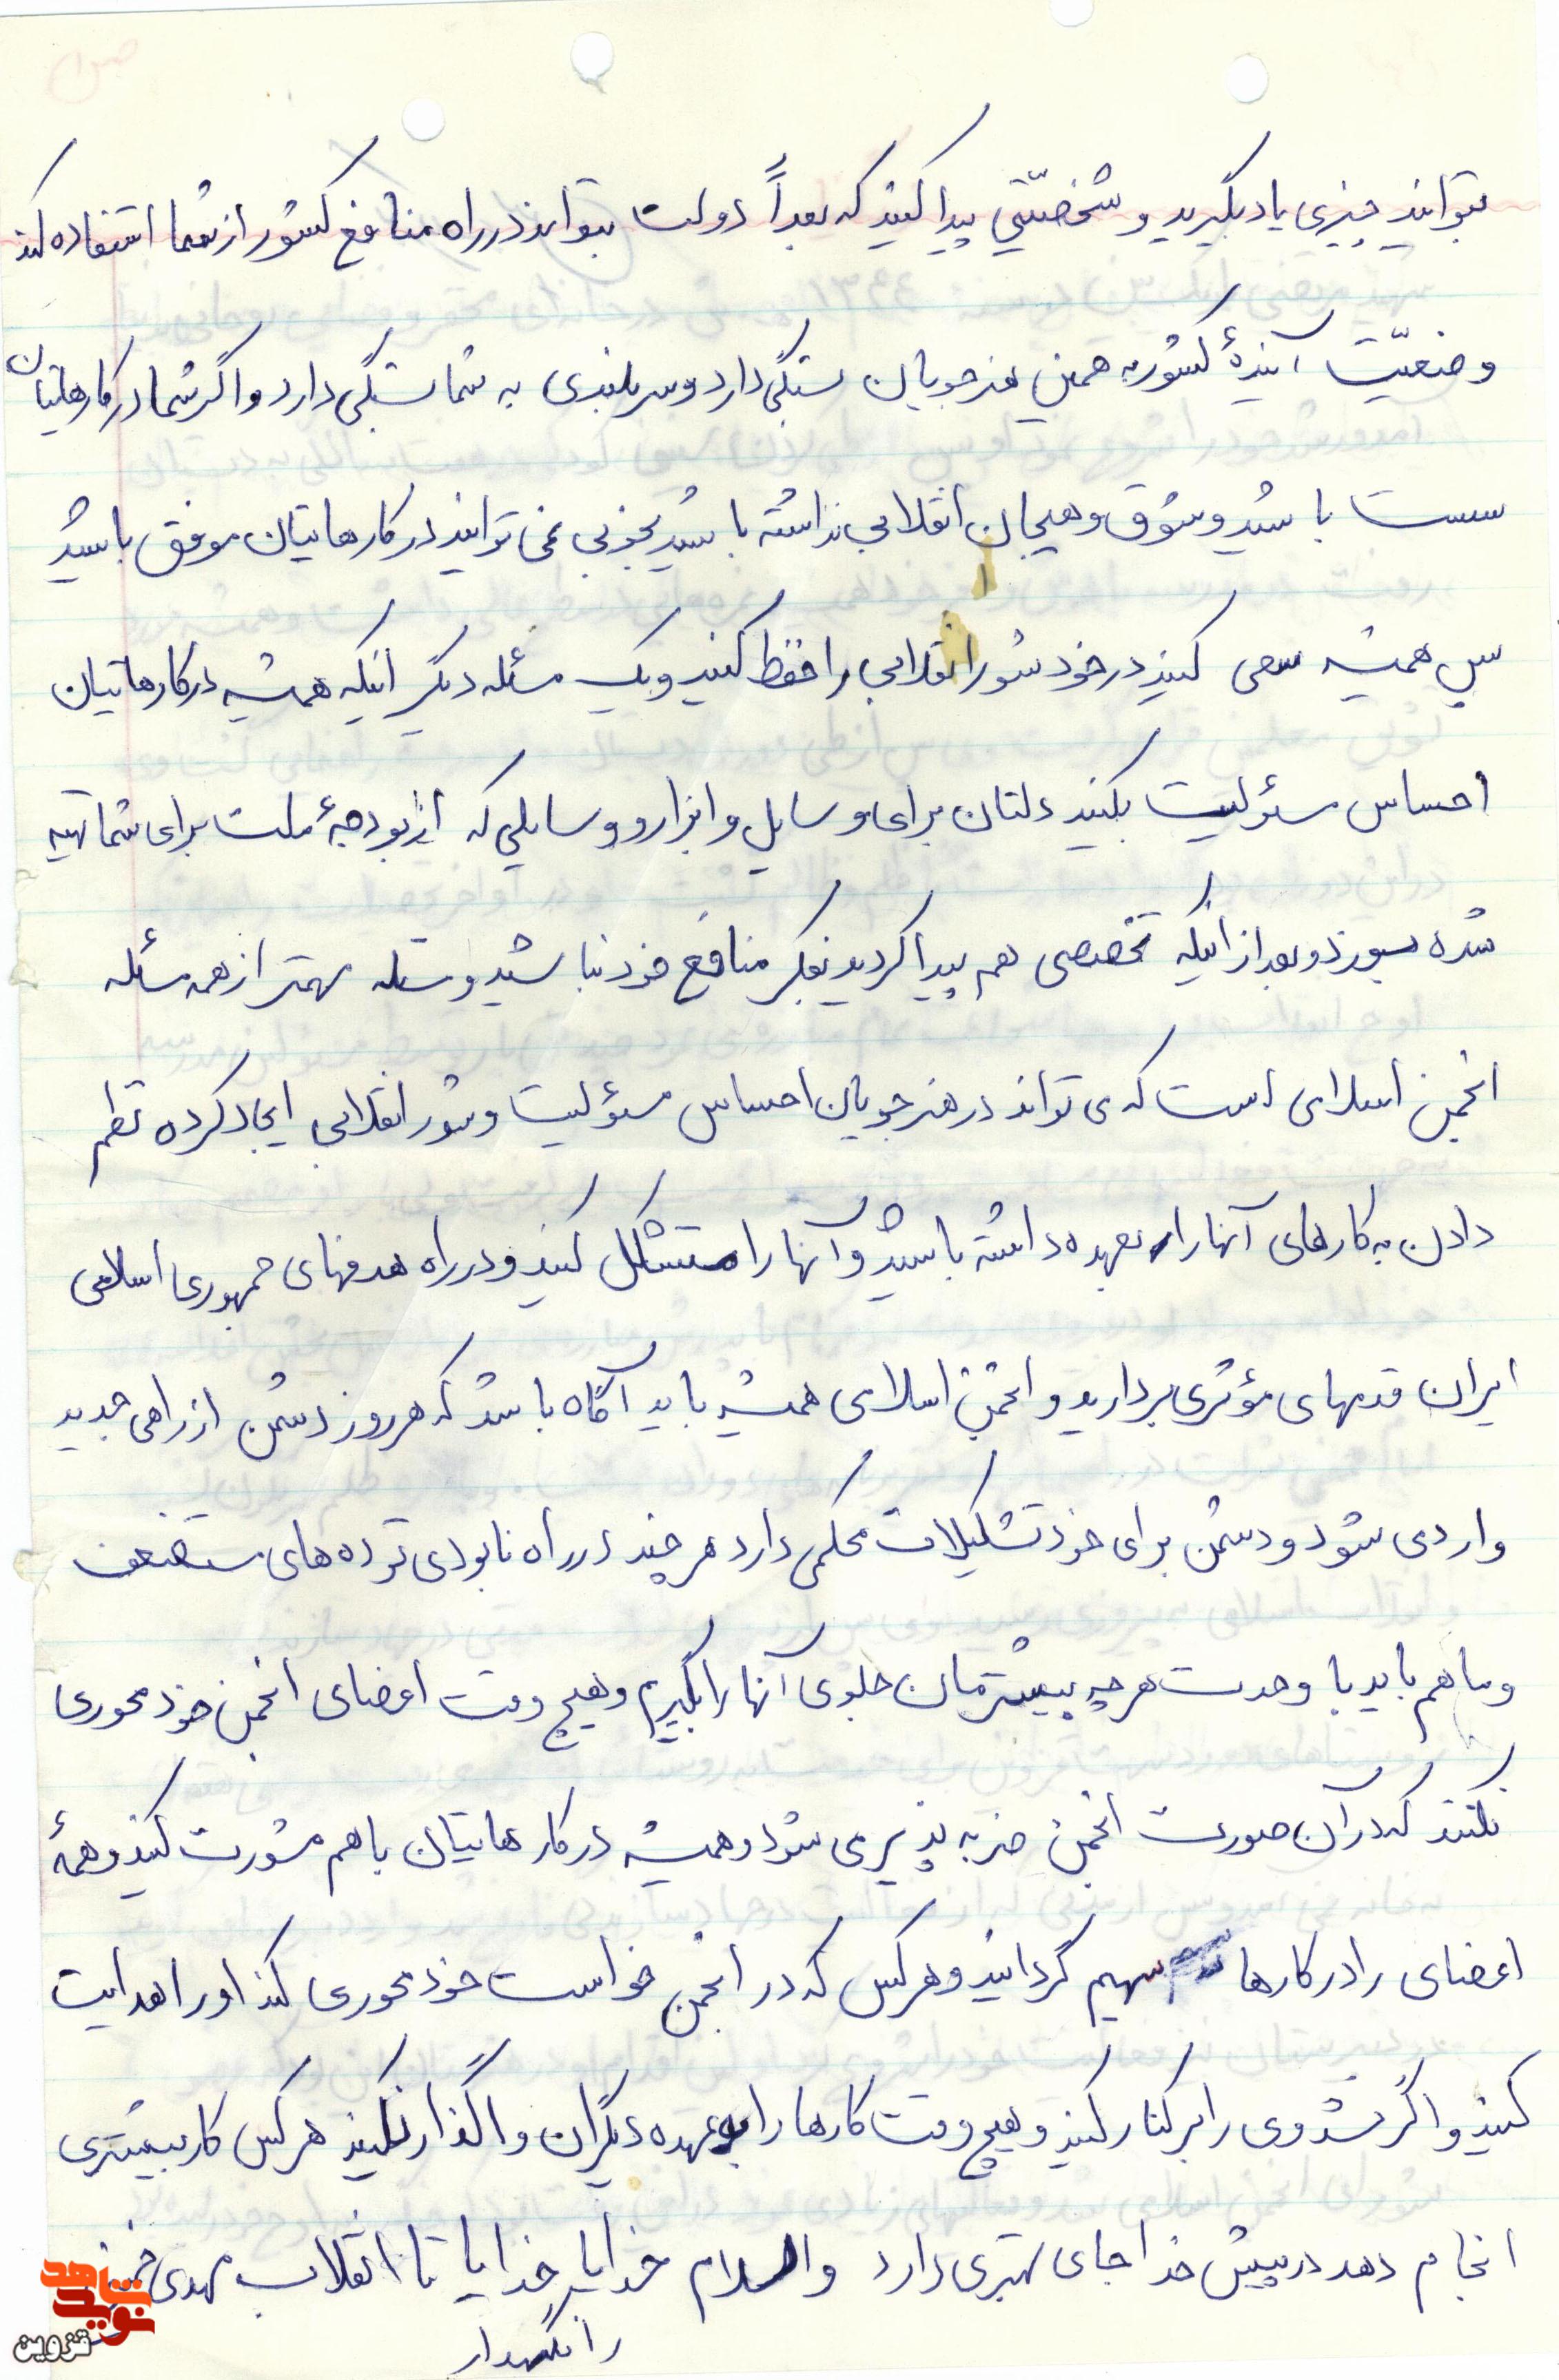 بتوانید چیزی یاد بگیرید و شخصیّتی پیدا کنید که بعداً دولت بتواند در راه منافع کشور از شما استفاده کند
وضعیّت آیندهٔ کشور به همین هنرجویان بستگی دارد و سربلندی به شما بستگی دارد و اگر شما در کارهایتان
سست باشید و شوق و هیجان انقلابی نداشته باشید بخوبی نمی توانید در کارهایتان موفق باشید
پس همیشه سعی کنید در خود شور انقلابی را حفظ کنید و یک مسئله دیگر اینکه همیشه در کارهایتان
احساس مسئولیت بکنید دلتان برای وسایل و ابزار و وسایلی که از بودجهٔ ملت برای شما تهیه
شده بسوزد و بعد از اینکه تخصصی هم پیدا کردید بفکر منافع خود نباشید و مسئله مهمتر از همه مسئله
انجمن اسلامی است که می تواند در هنرجویان احساس مسؤلیت و شور انقلابی ایجاد کرده نظم
دادن به کارهای آنها را بعهده داشته باشید و آنها را متشکل کنید و در راه هدفهای جمهوری اسلامی
ایران قدمهای مؤثری بردارید و انجمن اسلامی همیشه باید آگاه باشد که هر روز دشمن از راهی جدید
وارد می شود و دشمن برای خود تشکیلات محکمی دارد هر چند در راه نابودی توده های مستضعف
و ما هم باید با وحدت هر چه بیشترمان جلوی آنها را بگیریم و هیچ وقت اعضای انجمن خود محوری
نکنند که در آن صورت انجمن ضربه پذیر می شود و همیشه در کارهایتان با هم مشورت کنید و همهٔ
اعضای را در کارها سهیم گردانید و هر کس که در انجمن خواست خود محوری کند او را هدایت
کنید و اگر نشد وی را برکنار کنید و هیچ وقت کارها را به عهده دیگران واگذار نکنید هر کس کار بیشتری
انجام دهد در پیش خدا جای بهتری دارد والسلام خدایا خدایا تا انقلاب مهدی خمینی
را نگهدار
نوید شاهد
قزوین